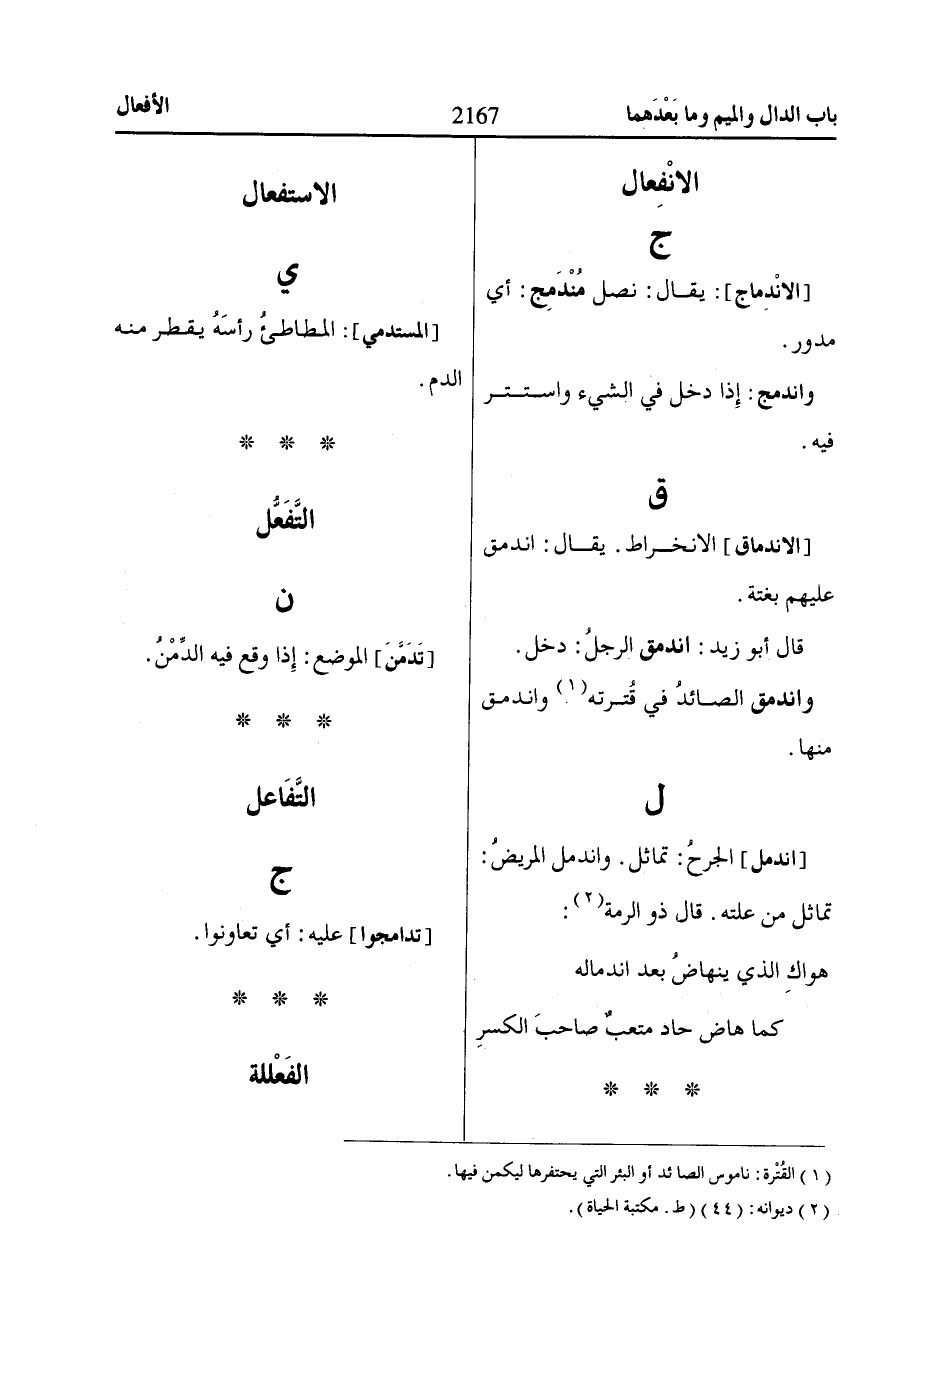 باب الدال والميم وما بَعْدَهما
2167
الأفعال
الانْفِعال
ج
[الانْدِماج]: يقال: نصل مُنْدَمِج: أي
مدور.
واندمج: إذا دخل في الشيء واستتر
فيه.
ق
[الاندماق] الانخراط. يقال: اندمق
عليهم بغتة.
قال أبو زيد: اندمق الرجلُ: دخل.
واندمق الصائدُ في قُترته(١) واندمق
منها.
ل
[اندمل] الجرحُ: تماثل. واندمل المريضُ:
تماثل من علته. قال ذو الرمة(٢):
هواكِ الذي ينهاضُ بعد اندماله
كما هاض حاد متعبٌ صاحبَ الكسرِ
* * *
الاستفعال
ي
[المستدمي]: المطاطئُ رأسَهُ يقطر منه
الدم.
* * *
التَّفَعُّل
ن
[تَدَمَّنَ] الموضع: إذا وقع فيه الدِّمْنُ.
* * *
التَّفَاعل
ج
[تدامجوا] عليه: أي تعاونوا.
* * *
الفَعْللة
(١) القُتْرة: ناموس الصائد أو البئر التي يحتفرها ليكمن فيها.
(٢) ديوانه: (٤٤) (ط. مكتبة الحياة).